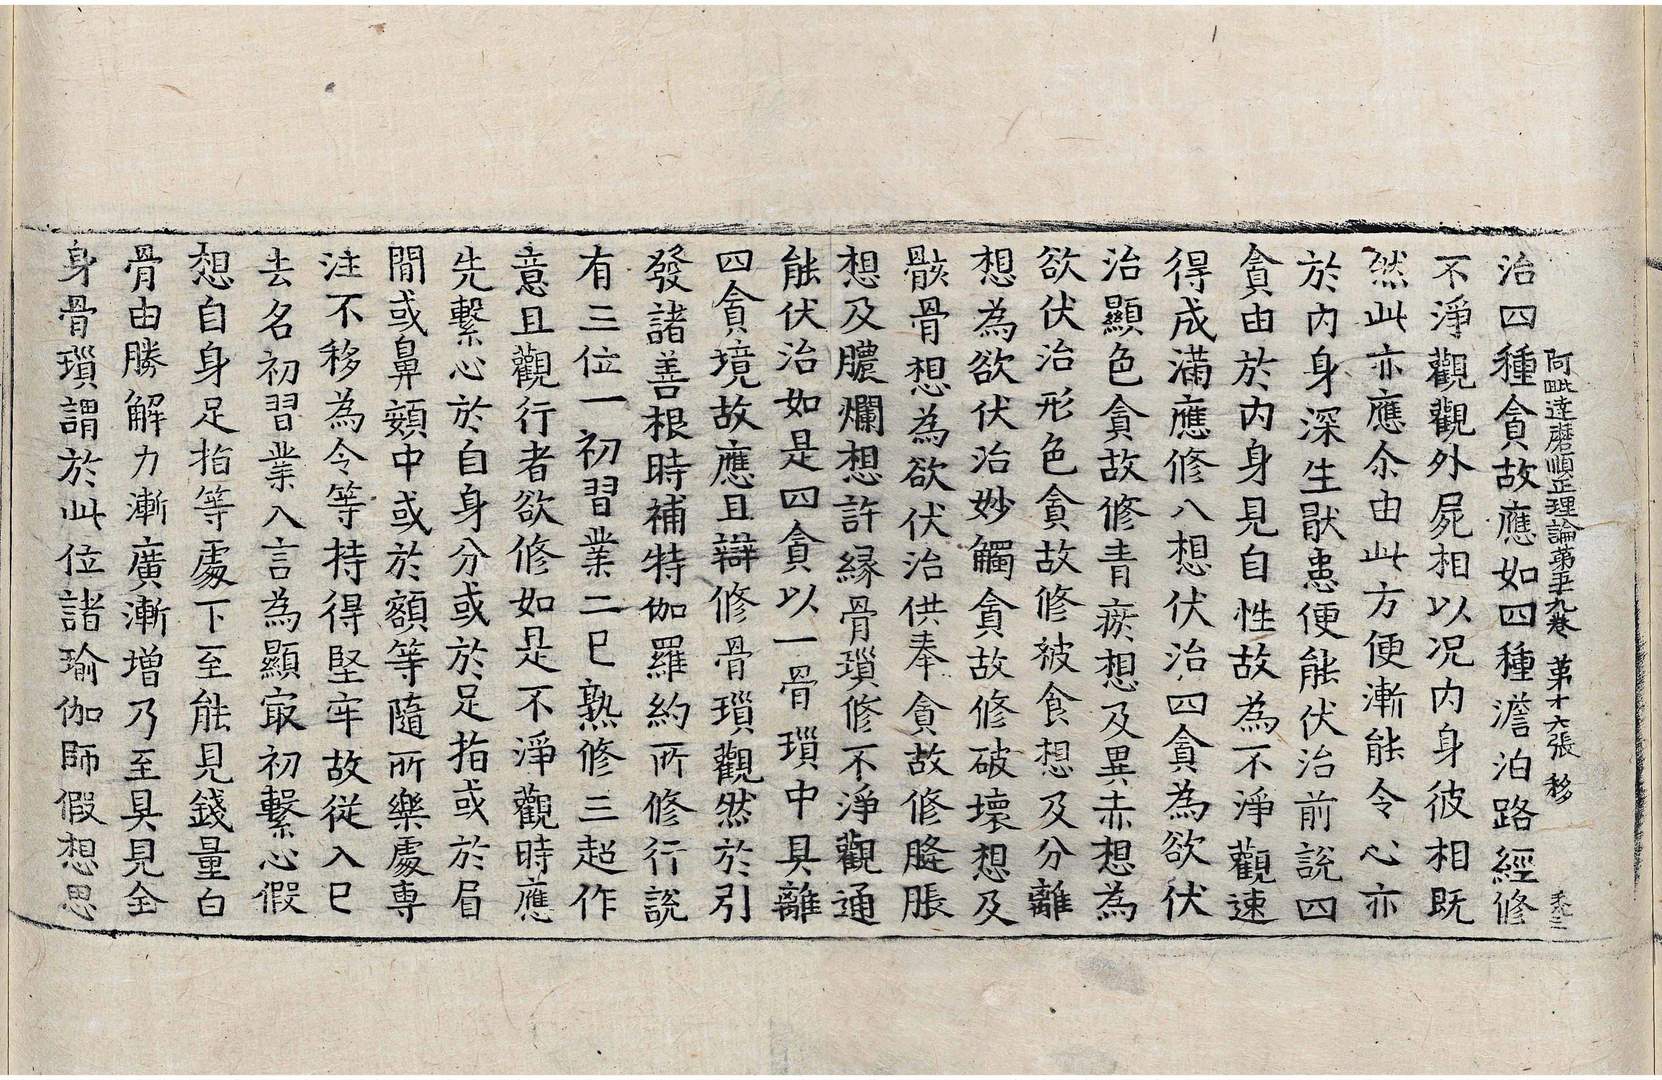 阿毗達磨順正理論第五十九卷 第十六張 移
治四種貪故應如四種澹泊路經修
不淨觀觀外屍相以况內身彼相既
然此亦應尒由此方便漸能令心亦
於內身深生猒患便能伏治前說四
貪由於內身見自性故為不淨觀速
得成滿應修八想伏治四貪為欲伏
治顯色貪故修青瘀想及異赤想為
欲伏治形色貪故修被食想及分離
想為欲伏治妙觸貪故修破壞想及
骸骨想為欲伏治供奉貪故修膖脹
想及膿爛想許緣骨瑣修不淨觀通
能伏治如是四貪以一骨瑣中具離
四貪境故應且辯修骨瑣觀然於引
發諸善根時補特伽羅約所修行說
有三位一初習業二巳熟修三超作
意且觀行者欲修如是不淨觀時應
先繫心於自身分或於足指或於眉
閒或鼻頞中或於額等隨所樂處專
注不移為令等持得堅牢故從入巳
去名初習業入言為顯㝡初繫心假
想自身足指等處下至能見錢量白
骨由勝解力漸廣漸增乃至具見全
身骨瑣謂於此位諸瑜伽師假想思